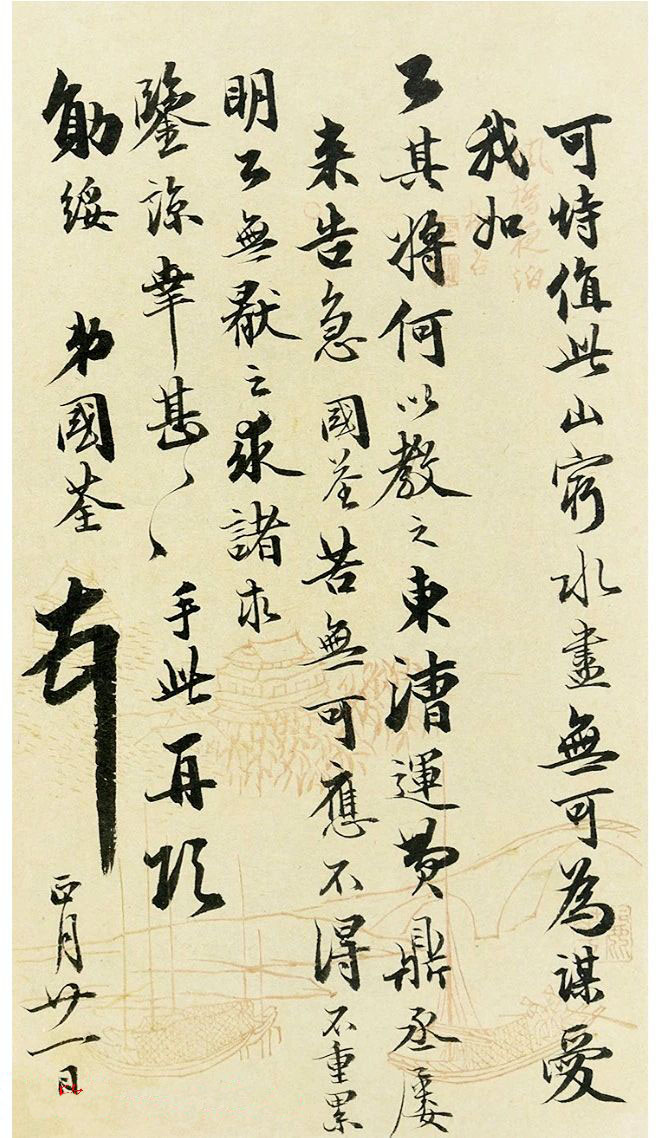 可恃值此山窮水盡無可為謀愛
我如
公其將何以教之東漕運費鼎丞屢
来告急國荃苦無可應不得不重累
明公無厭之求諸求
鑒諒幸甚〻〻手此再頌
勛綏 弟國荃
正月廿一日
楓橋夜泊